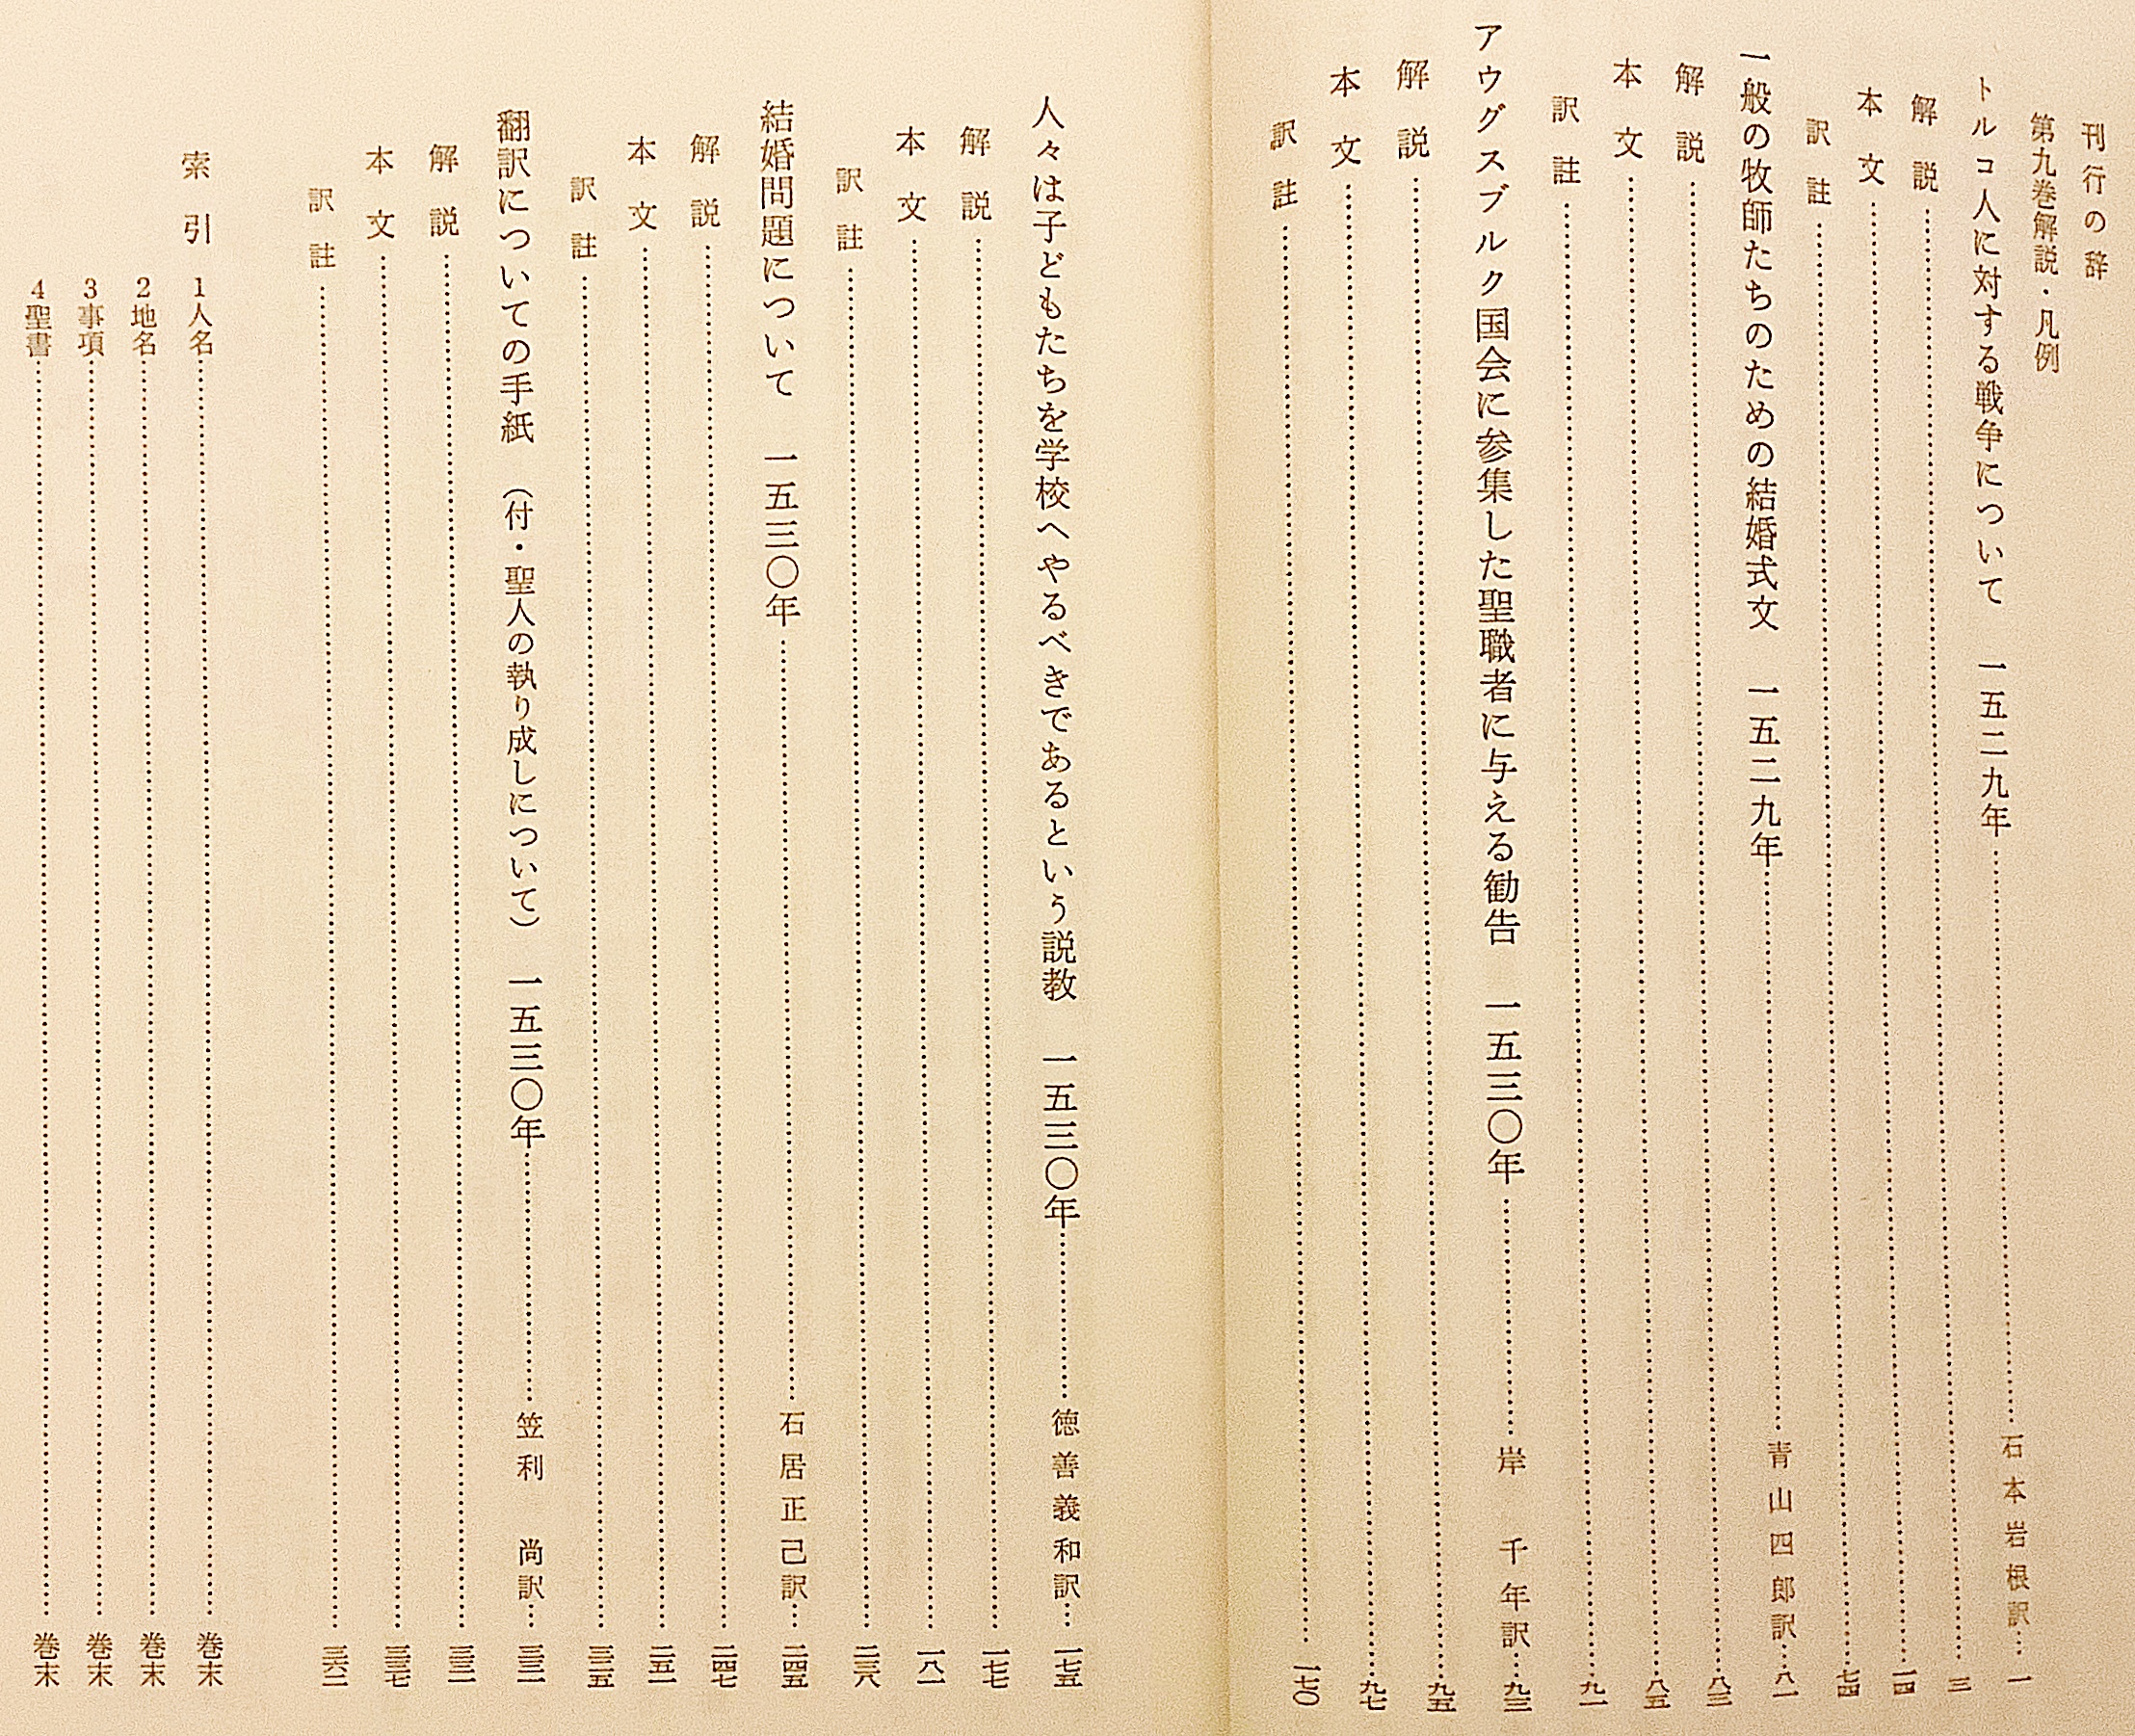 刊行の辞
第九巻解説・凡例
トルコ人に対する戦争について 一五二九年……石本岩根訳…一
解説……三
本文……一四
訳註……七四
一般の牧師たちのための結婚式文 一五二九年……青山四郎訳…八一
解説……八三
本文……八五
訳註……九一
アウグスブルク国会に参集した聖職者に与える勧告 一五三〇年……岸 千年訳…九三
解説……九五
本文……九七
訳註……一七〇
人々は子どもたちを学校へやるべきであるという説教 一五三〇年……徳善義和訳…一七五
解説……一七七
本文……一八一
訳註……二三八
結婚問題について 一五三〇年……石居正己訳…二四五
解説……二四七
本文……二五一
訳註……三二五
翻訳についての手紙 (付・聖人の執り成しについて) 一五三〇年……笠利 尚訳…三三一
解説……三三三
本文……三三七
訳註……三六二
索引 1人名……巻末
2地名……巻末
3事項……巻末
4聖書……巻末